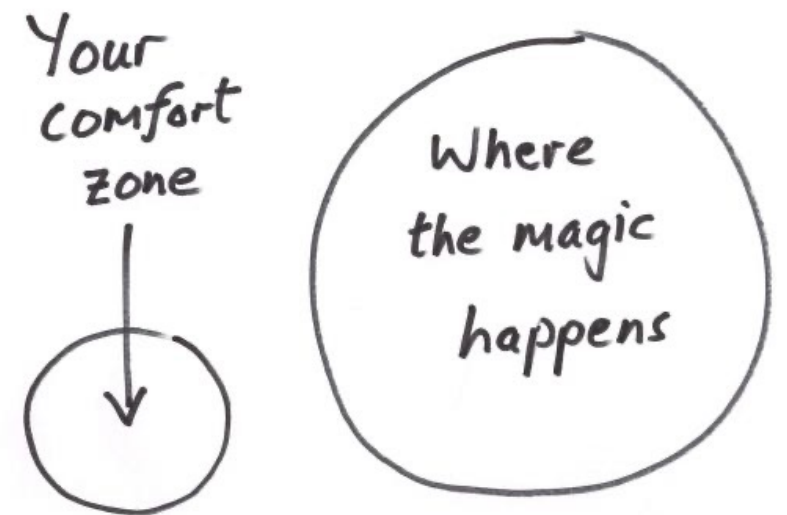 Your
comfort
zone
Where
the magic
happens